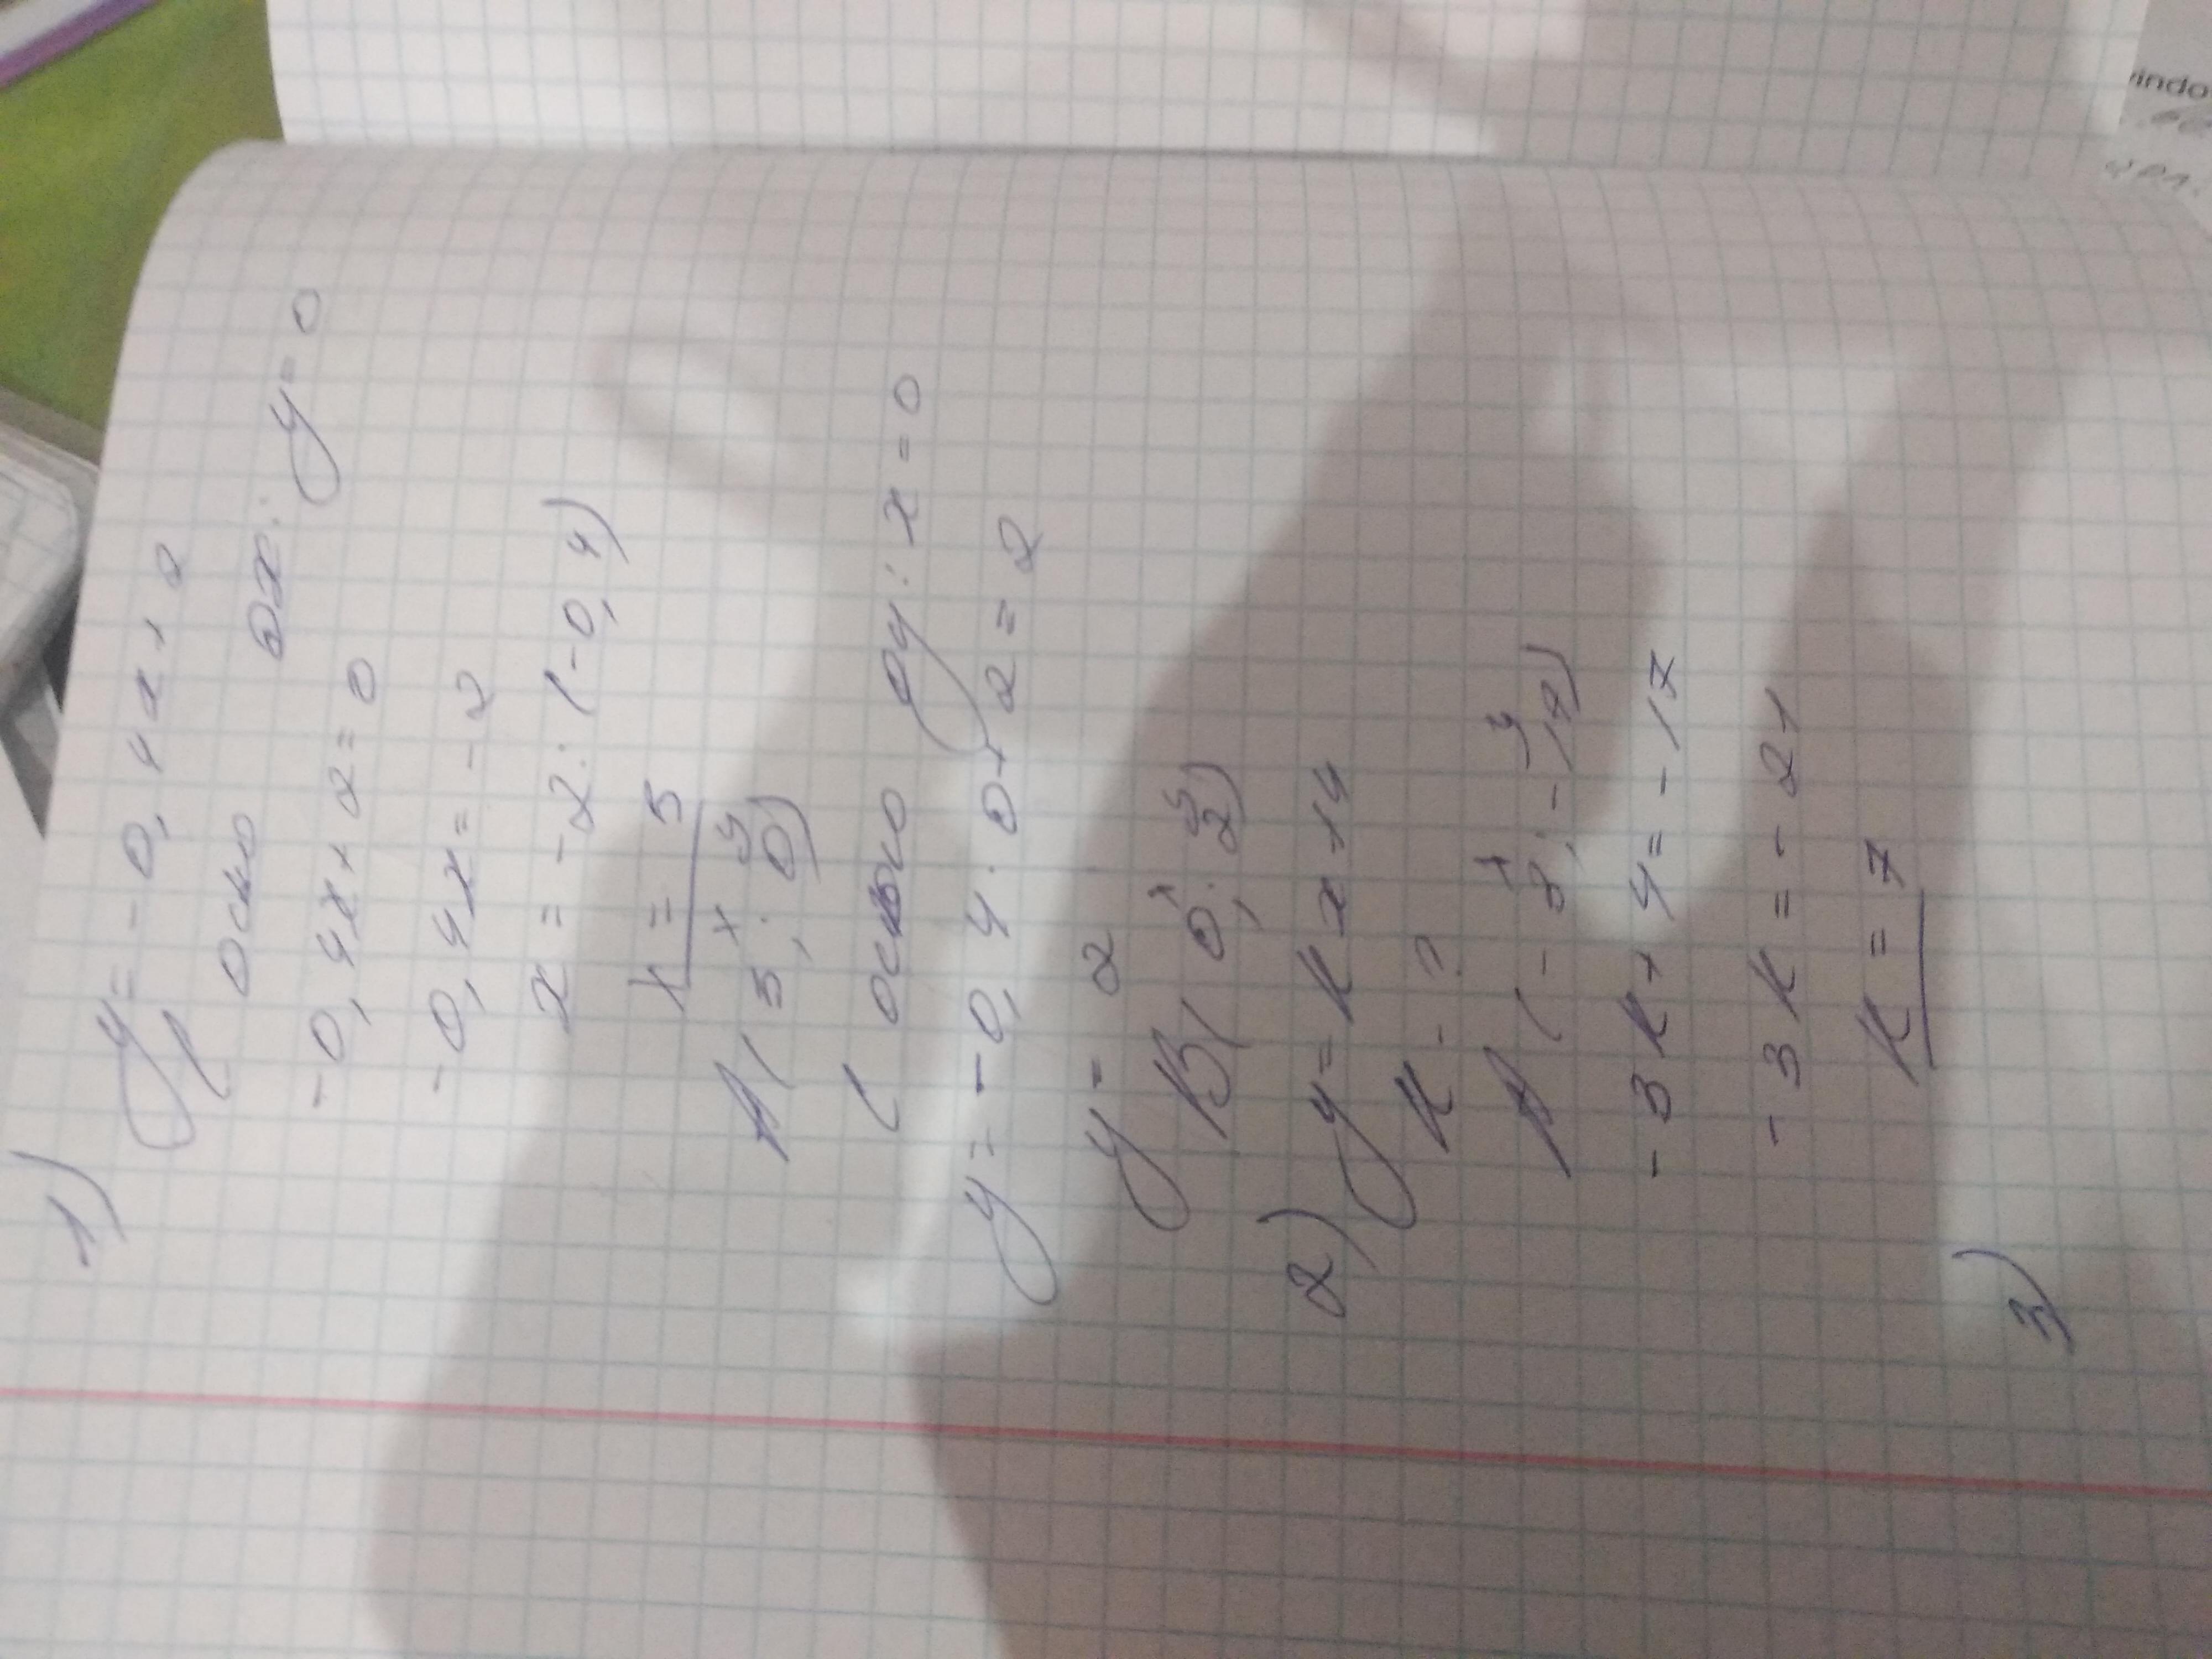 1) y = -0,4x + 2
с осью ох: y = 0
-0,4x + 2 = 0
-0,4x = -2
x = -2 : (-0,4)
x = 5
x y
A(5; 0)
с осью оу: x = 0
y = -0,4 · 0 + 2 = 2
y = 2
x y
B(0; 2)
2) y = kx + 4
k - ?
x y
A(-3; -17)
-3k + 4 = -17
-3k = -21
k = 7
3)
indo